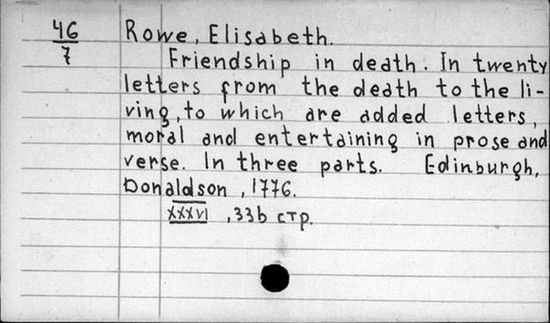 46
7
Rowe, Elisabeth.
Friendship in death. In twenty
letters from the death to the li-
ving, to which are added letters,
moral and entertaining in prose and
verse. In three parts. Edinburgh,
Donaldson, 1776.
XXXVI, 336 стр.